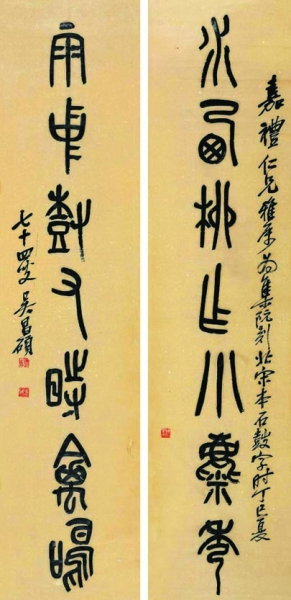 嘉禮仁兄雅屬為集阮刻北宋本石鼓字時丁巳夏
水 柳乍小
雨中樹又時禽鳴
七十四叟吴昌碩